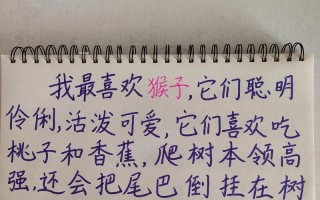 我最喜欢猴子,它们聪明
伶俐,活泼可爱,它们喜欢吃
桃子和香蕉,爬树本领高
强,还会把尾巴倒挂在树